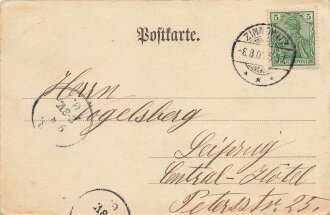 Postkarte.
ZINNOWITZ
5 5
Herrn
Vogelsberg
Leipzig
Central-Hôtel
Petersstr. 25.